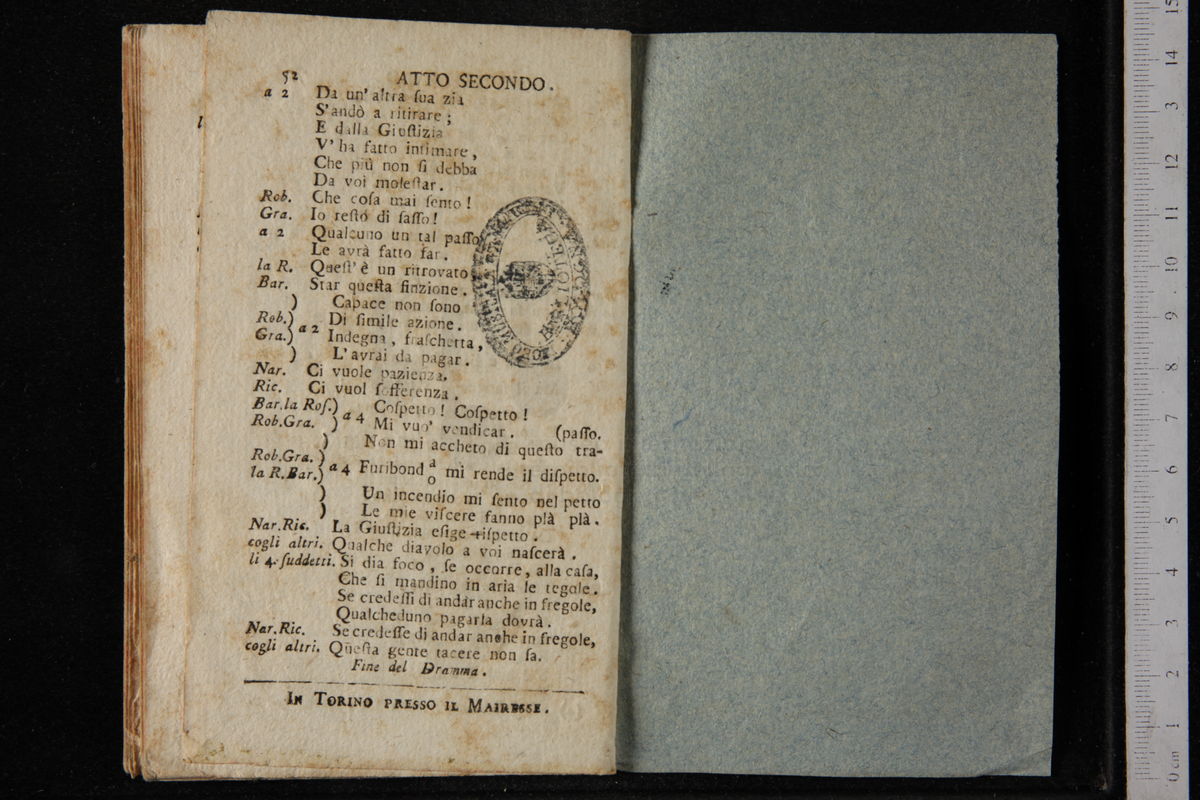 52 ATTO SECONDO.
a 2 Da un' altra ſua zia
S'andò a ritirare;
E dalla Giuſtizia
V' ha fatto intimare,
Che più non ſi debba
Da voi moleſtar.
Rob. Che coſa mai ſento!
Gra. Io reſto di ſaſſo!
a 2 Qualcuno un tal paſſo
Le avrà fatto far.
la R. Queſt' è un ritrovato
Bar. Star queſta finzione.
) Capace non ſono
Rob.) Di ſimile azione.
Gra.) a 2 Indegna, fraſchetta,
) L' avrai da pagar.
Nar. Ci vuole pazienza.
Ric. Ci vuol ſofferenza.
Bar.la Roſ.) a 4 Coſpetto! Coſpetto!
Rob.Gra. ) Mi vuo' vendicar. (paſſo.
) Non mi accheto di queſto tra-
Rob.Gra. )
la R.Bar.) a 4 Furibond a/o mi rende il diſpetto.
) Un incendio mi ſento nel petto
) Le mie viſcere fanno plà plà.
Nar.Ric. La Giuſtizia eſige riſpetto.
cogli altri. Qualche diavolo a voi naſcerà.
li 4. ſuddetti. Si dia foco, ſe occorre, alla caſa,
Che ſi mandino in aria le tegole.
Se credeſſi di andar anche in fregole,
Qualcheduno pagarla dovrà.
Nar.Ric. Se credeſſe di andar anche in fregole,
cogli altri. Queſta gente tacere non ſa.
Fine del Dramma.
IN TORINO PRESSO IL MAIRESSE.